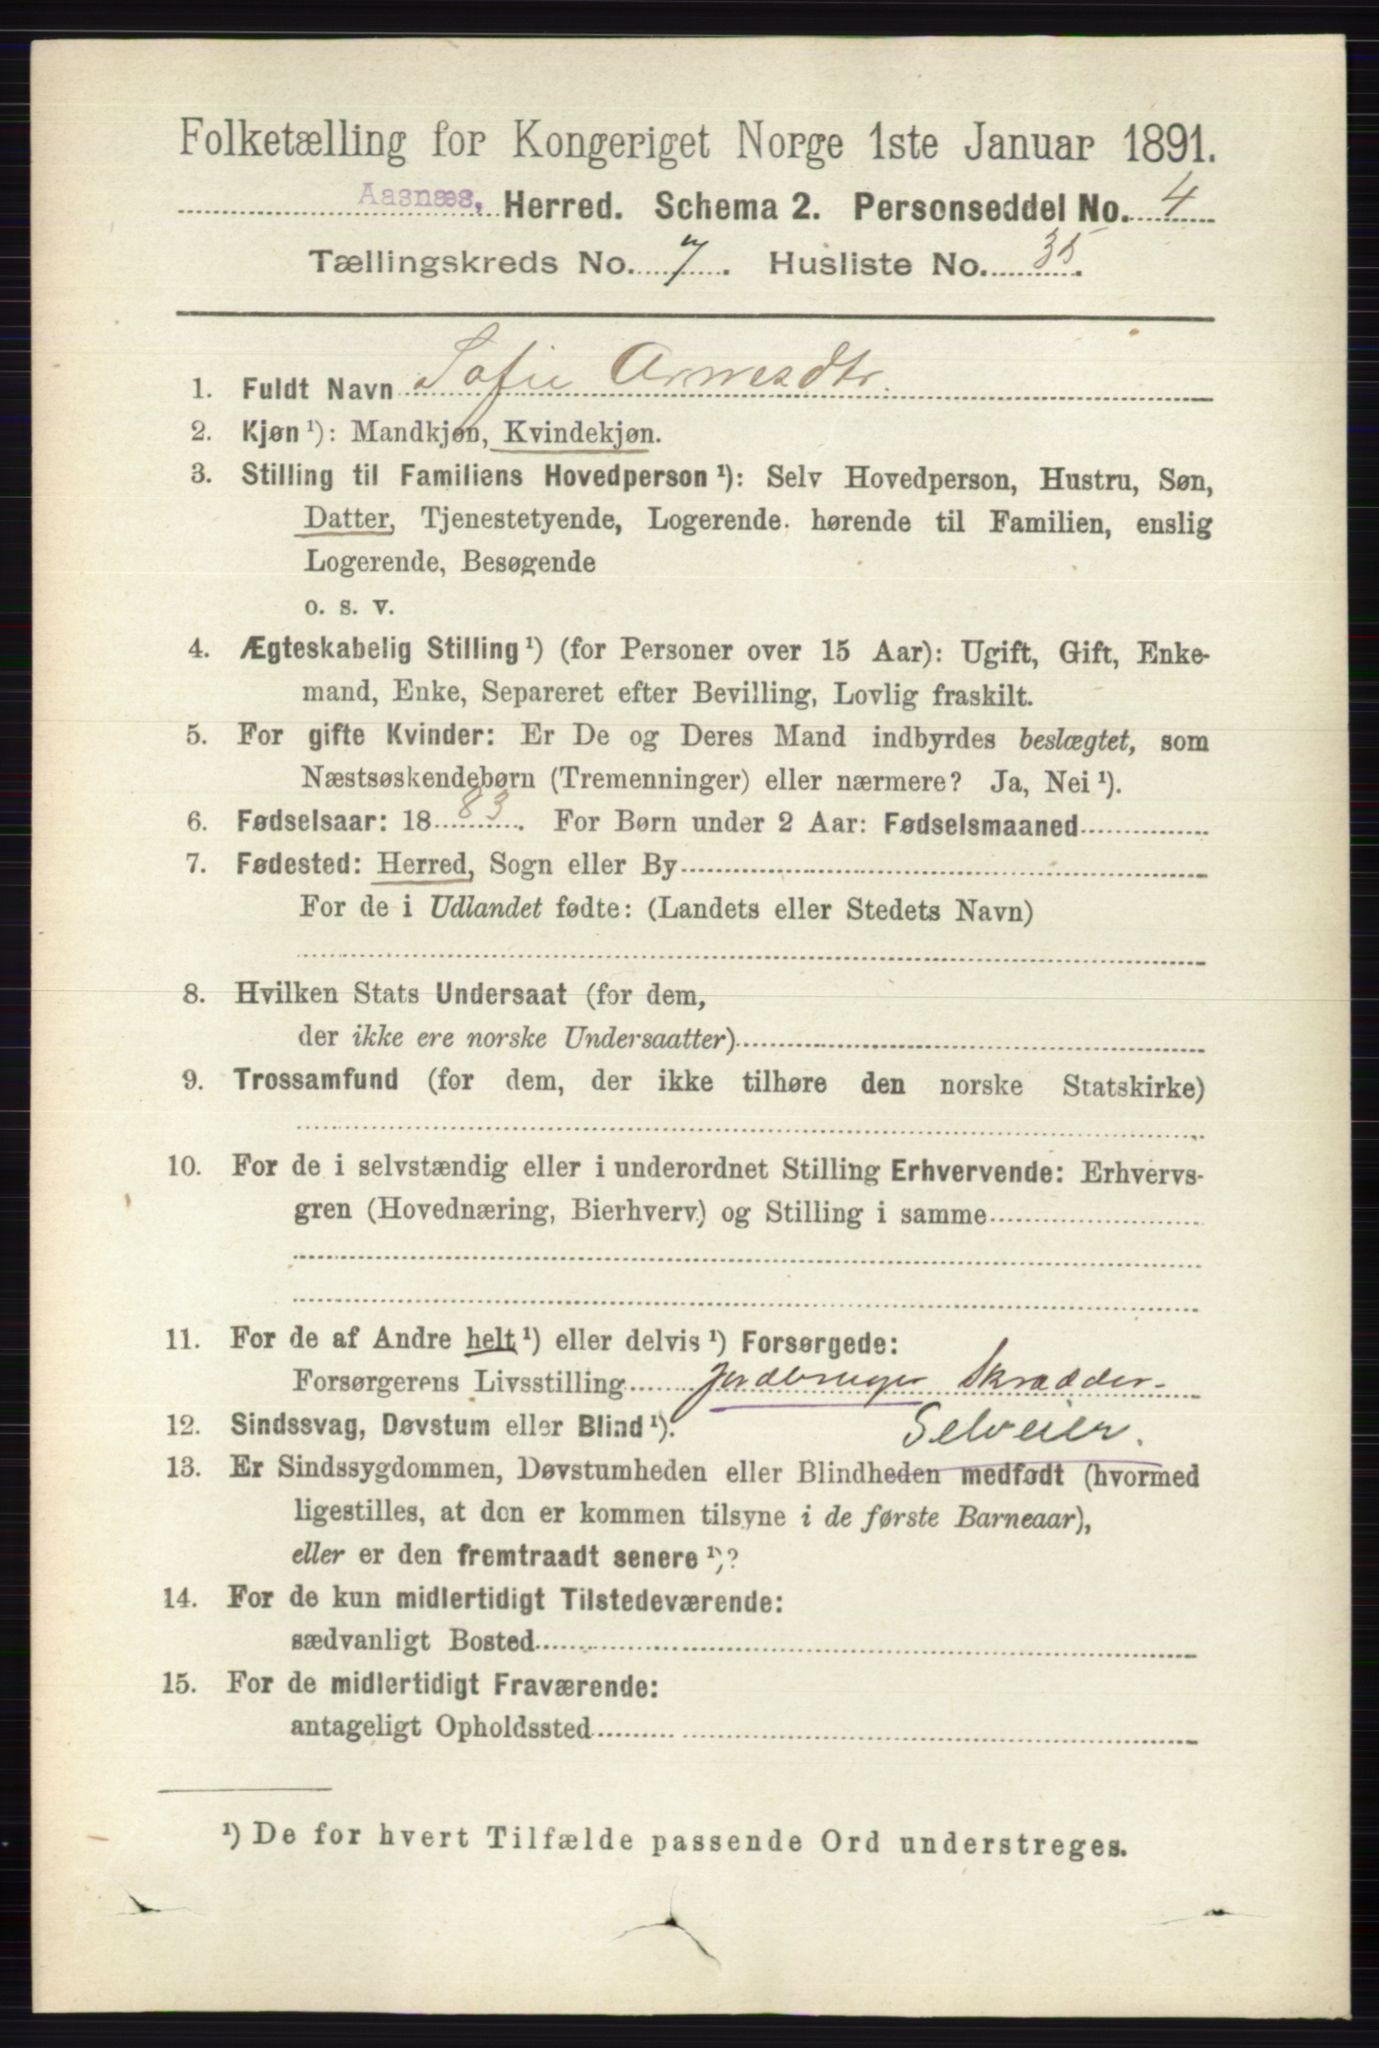 Folketælling for Kongeriget Norge 1ste Januar 1891.
Aasnæs, Herred. Schema 2. Personseddel No. 4
Tællingskreds No. 7. Husliste No. 35.
1. Fuldt Navn Sofie Arnesdtr.
2. Kjøn ¹): Mandkjøn, Kvindekjøn.
3. Stilling til Familiens Hovedperson ¹): Selv Hovedperson, Hustru, Søn,
Datter, Tjenestetyende, Logerende hørende til Familien, enslig
Logerende, Besøgende
o. s. v.
4. Ægteskabelig Stilling ¹) (for Personer over 15 Aar): Ugift, Gift, Enke-
mand, Enke, Separeret efter Bevilling, Lovlig fraskilt.
5. For gifte Kvinder: Er De og Deres Mand indbyrdes beslægtet, som
Næstsøskendebørn (Tremenninger) eller nærmere? Ja, Nei ¹).
6. Fødselsaar: 1883. For Børn under 2 Aar: Fødselsmaaned
7. Fødested: Herred, Sogn eller By
For de i Udlandet fødte: (Landets eller Stedets Navn)
8. Hvilken Stats Undersaat (for dem,
der ikke ere norske Undersaatter)
9. Trossamfund (for dem, der ikke tilhøre den norske Statskirke)
10. For de i selvstændig eller i underordnet Stilling Erhvervende: Erhvervs-
gren (Hovednæring, Bierhverv) og Stilling i samme
11. For de af Andre helt ¹) eller delvis ¹) Forsørgede:
Forsørgerens Livsstilling Jordbruger Skrædder-
12. Sindssvag, Døvstum eller Blind ¹). Selveier.
13. Er Sindssygdommen, Døvstumheden eller Blindheden medfødt (hvormed
ligestilles, at den er kommen tilsyne i de første Barneaar),
eller er den fremtraadt senere ¹)?
14. For de kun midlertidigt Tilstedeværende:
sædvanligt Bosted
15. For de midlertidigt Fraværende:
antageligt Opholdssted
¹) De for hvert Tilfælde passende Ord understreges.